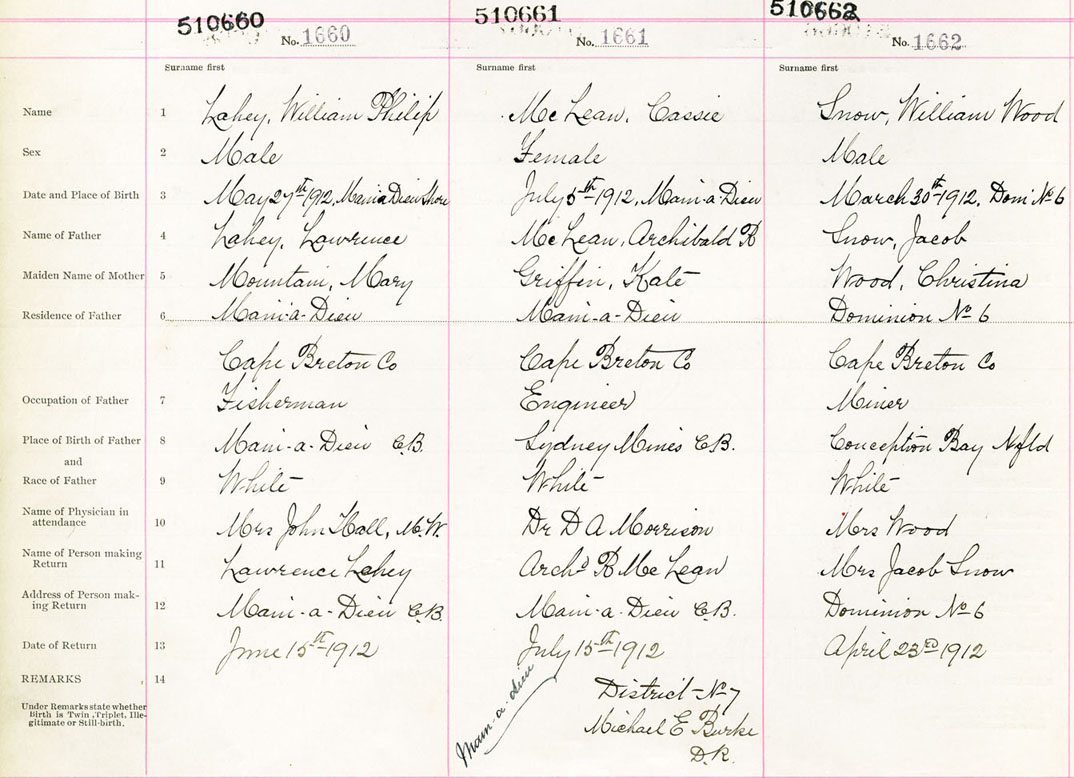 510660 510661 510662
No. 1660 No. 1661 No. 1662
Surname first Surname first Surname first
Name 1 Lahey, William Philip McLean, Cassie Snow, William Wood
Sex 2 Male Female Male
Date and Place of Birth 3 May 27th 1912, Main a Dieu Shore July 5th 1912, Main-a-Dieu March 30th 1912, Dom No 6
Name of Father 4 Lahey, Lawrence McLean, Archibald R Snow, Jacob
Maiden Name of Mother 5 Mountain, Mary Griffin, Kate Wood, Christina
Residence of Father 6 Main-a-Dieu Main-a-Dieu Dominion No 6
Cape Breton Co Cape Breton Co Cape Breton Co
Occupation of Father 7 Fisherman Engineer Miner
Place of Birth of Father 8 Main-a-Dieu C.B. Sydney Mines C.B. Conception Bay Nfld
and
Race of Father 9 White White White
Name of Physician in
attendance 10 Mrs John Hall, M.W. Dr D A Morrison Mrs Wood
Name of Person making
Return 11 Lawrence Lahey Archd R McLean Mrs Jacob Snow
Address of Person mak-
ing Return 12 Main-a-Dieu C.B. Main-a-Dieu C.B. Dominion No 6
Date of Return 13 June 15th 1912 July 15th 1912 April 23rd 1912
REMARKS 14
Under Remarks state whether
Birth is Twin, Triplet, Ille-
gitimate or Still-birth.
Main-a-Dieu
District No 7
Michael E Burke
D.R.